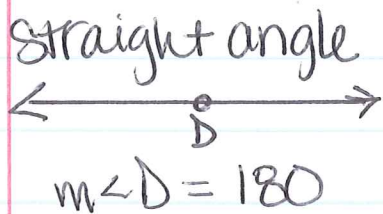 straight angle
D
m<D = 180